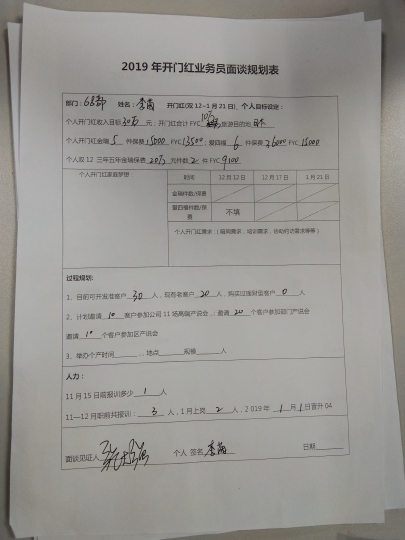 2019年开门红业务员面谈规划表
部门：68部 姓名：李茵 开门红(双12-1月21日)、个人目标设定：
个人开门红收入目标30万元；开门红合计FYC 旅游目的地
个人开门红金瑞5件保费15000 FYC13500；爱四福6件保费26000 FYC15000
个人双12 三年五年金瑞保费20万元件数2件FYC9100
个人开门红家庭梦想 时间 12月12日 12月17日 1月21日
金瑞件数/保费
爱四福件数/保费 不填
个人开门红需求（陪同需求，培训需求，协助约访需求等等）
过程规划:
1、目前可开发准客户30人，现有老客户20人，购买过理财型客户0人
2、计划邀请10客户参加公司11场高端产说会，邀请20个客户参加部门产说会
邀请10个客户参加区产说会
3、举办个产时间____，地点____规模____人
人力:
11月15日前报训多少1人
11—12月职前共报训：3人，1月上岗2人，2019年1月1日晋升04
面谈见证人 个人 签名李茵 日期